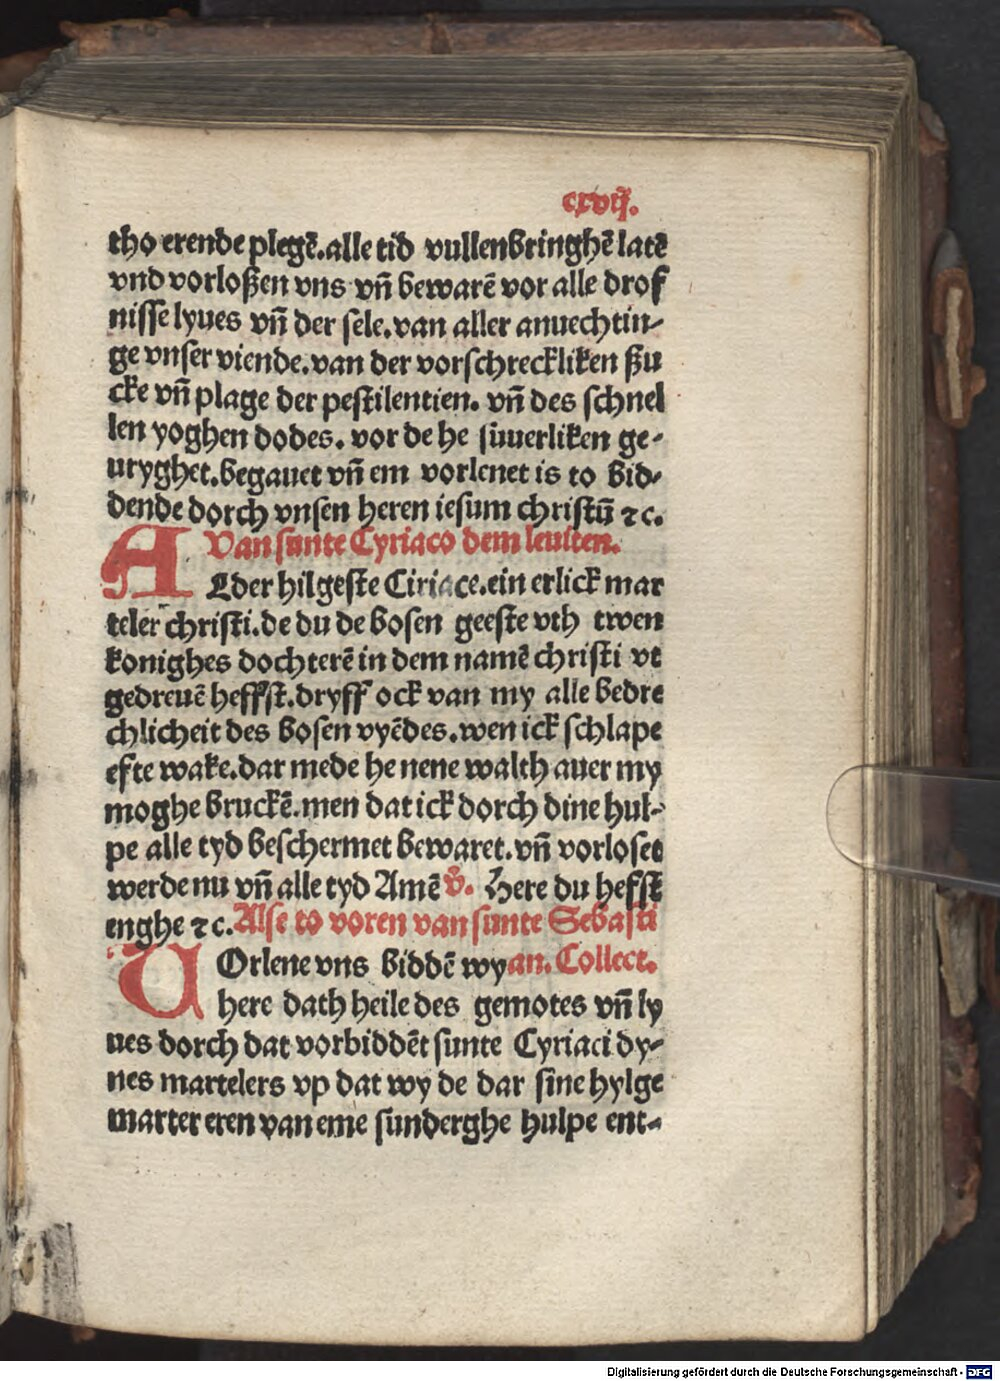 cxvij.
tho erende plegē.alle tid vullenbringhē latē
vnd vorloßen vns vn̄ bewarē vor alle drof
nisse lyues vn̄ der sele.van aller anuechtin-
ge vnser viende.van der vorschreckliken ßu
cke vn̄ plage der pestilentien. vn̄ des schnel
len yoghen dodes. vor de he suuerliken ge-
uryghet.begauet vn̄ em vorlenet is to bid-
dende dorch vnsen heren iesum christū ⁊c.
Van sunte Cyriaco dem leuiten.
A Lder hilgeste Ciriace.ein erlick mar
teler christi.de du de bosen geeste vth twen
konighes dochterē in dem namē christi vt
gedreuē heffst.dryff ock van my alle bedre
chlicheit des bosen vyēdes.wen ick schlape
efte wake.dar mede he nene walth auer my
moghe bruckē.men dat ick dorch dine hul-
pe alle tyd beschermet bewaret.vn̄ vorloset
werde nu vn̄ alle tyd Amē v̄. Here du heffst
enghe ⁊c. Alse to voren van sunte Sebasti
V Orlene vns biddē wy an. Collect.
here dath heile des gemotes vn̄ ly
ues dorch dat vorbiddēt sunte Cyriaci dy-
nes martelers vp dat wy de dar sine hylge
marter eren van eme sunderghe hulpe ent-
Digitalisierung gefördert durch die Deutsche Forschungsgemeinschaft - DFG